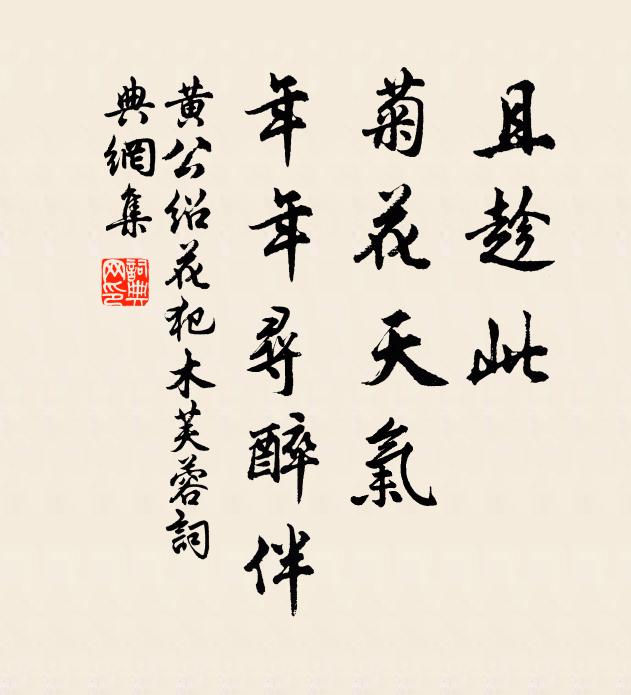 且趁此
菊花天氣
年年尋醉伴
黃公紹花犯木芙蓉詞
典網集
詞典網印